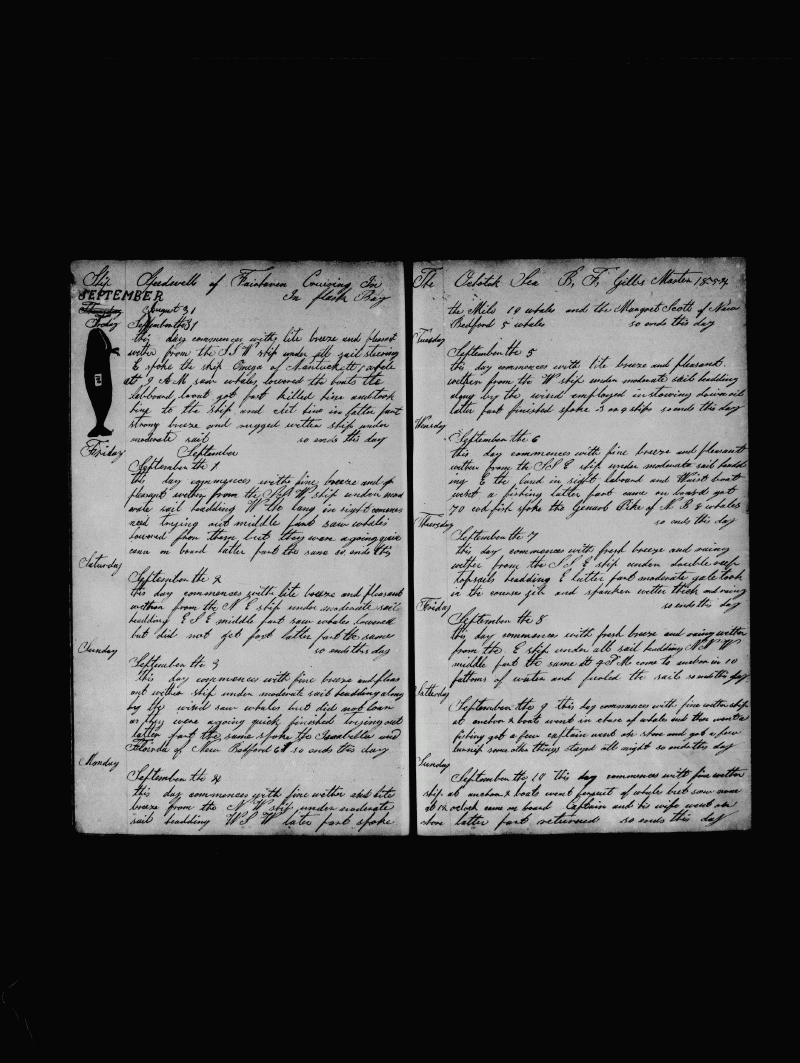 Ship Speedwell of Fairhaven Cruising In
SEPTEMBER In flash Bay
Thursday August 31
Friday September the 31
this day commences with lite breeze and pleasant
wether from the S S W ship under all sail stering
E spoke the ship Omega of Nantuckett 1 whale
at 9 A M saw whales lowered the boats the
labboard boat got fast killed hime and took
hime to the ship and cut hime in latter part
strong breeze and rugged wether ship under
moderate sail so ends this day
Friday September
September the 1
this day commences with fine breeze and
pleasant wether from the S S W ship under mod
erate sail headding W the lang in sight comences
and trying out middle part saw whales
lowered for them but they were agoing quick
came on board latter part the same so ends this
Saturday
September the 2
this day commences with lite breeze and pleasant
wether from the N E ship under moderate sail
headding E S E middle part saw whales lowered
but did not get fast latter part the same
so ends this day
Sunday
September the 3
this day commences with fine breeze and pleas
ant wether ship under moderate sail headding along
by the wind saw whales but did not lower
as they were agoing quick finished trying out
latter part the same spoke the Isabella and
Florida of New Bedford so ends this day
Monday
September the 4
this day commences with fine wether and lite
breeze from the N W ship under moderate
sail headding W S W later part spoke
The Ochotsk Sea B, F, Gibbs Master 1854
the Milo 10 whales and the Margret Scott of New
Bedford 5 whales so ends this day
Tuesday
September the 5
this day commences with lite breeze and pleasant
wether from the W ship under moderate sail headding
along by the wind employed in stowing down oil
latter part finished spoke 3 or 4 ships so ends this day
Wensday
September the 6
this day commences with fine breeze and pleasant
wether from the S S E ship under moderate sail headd
ing E the land in sight laboard and Waist boats
went a fishing latter part came on board got
70 cod fish spoke the Generl Pike of N. B 2 whales
so ends this day
Thursday
September the 7
this day commences with fresh breeze and rainy
wether from the S S E ship under double reef
topsails headding E latter part moderate gale took
in the courses gib and spanker wetter thick and rainy
so ends this day
Friday
September the 8
this day commences with fresh breeze and rainy wether
from the E ship under all sail headding N N W
middle part the same at 9 P M come to anchor in 10
fathoms of water and furled the sails so ends this day
Satterday
September the 9 this day commences with fine wether ship
at anchor 2 boats went in chace of whales and then went a
fishing got a few captain went on shore and got a few
turnip some other things stayed all night so ends this day
Sunday
September the 10 this day commences with fine wether
ship at anchor 2 boats went persuit of whale but saw none
at 12 oclock came on board Captain and his wife went on
shore latter part returned so ends this day